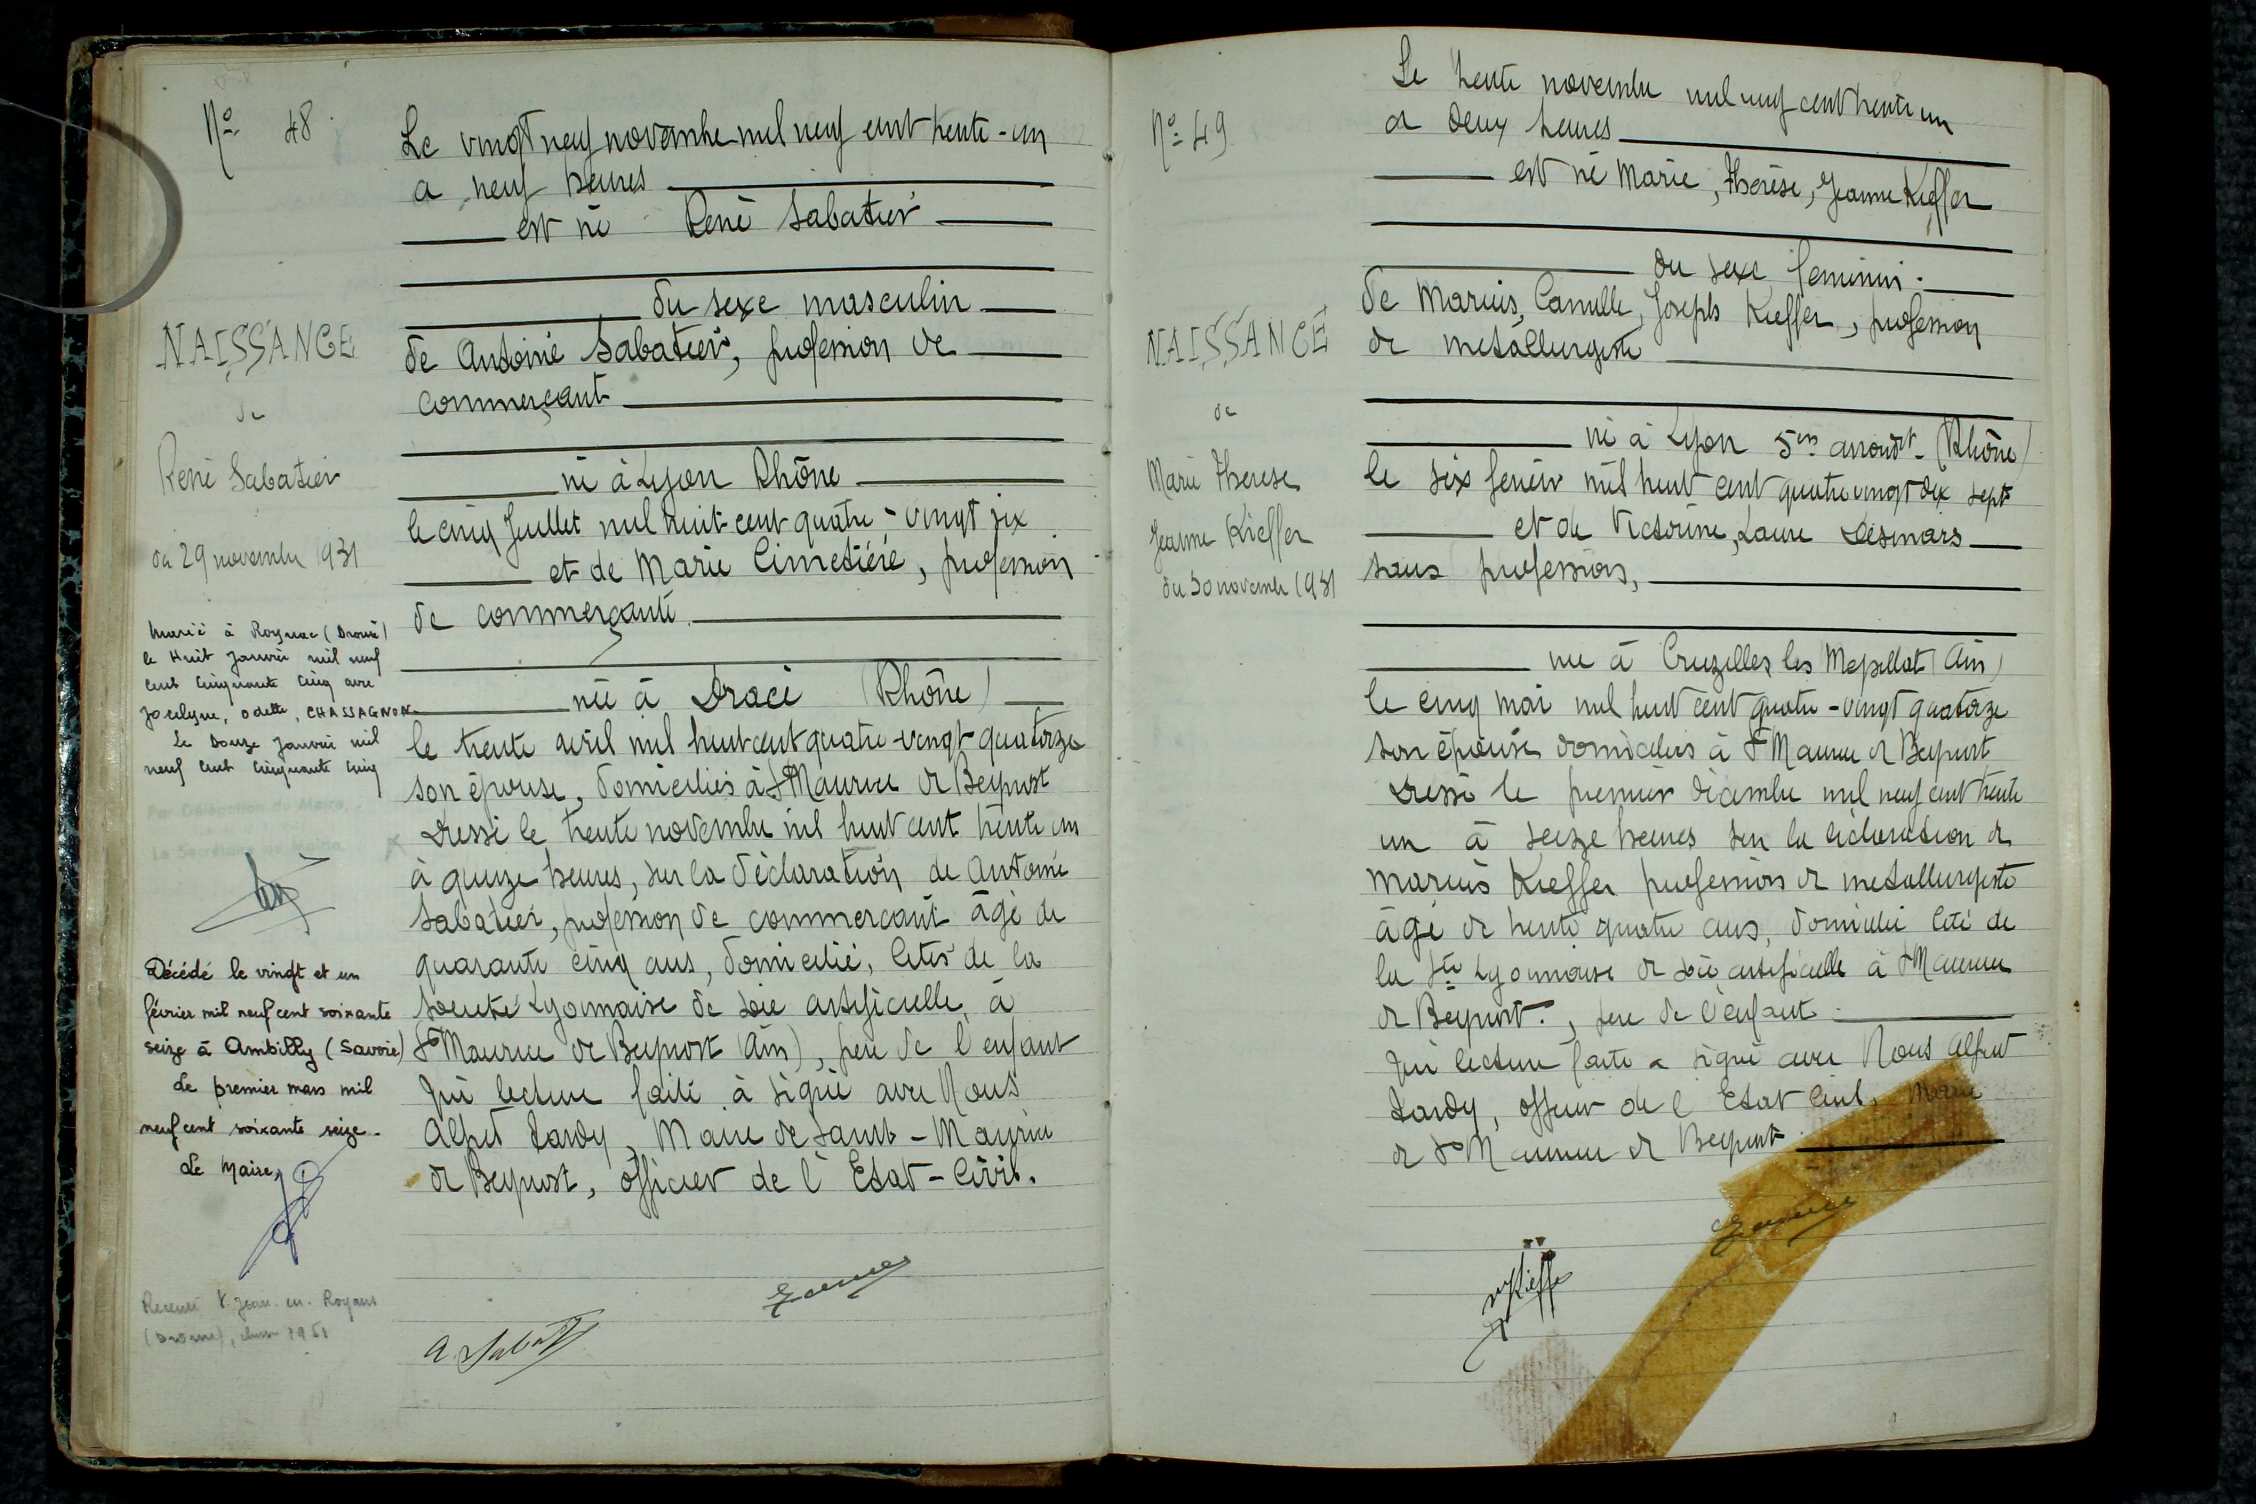 No 48
NAISSANCE
de
René Sabatier
du 29 novembre 1931
Marié à Roynac (Drome)
le Huit janvier mil neuf
cent cinquante cinq avec
Jocelyne, Odette, CHASSAGNON
Le Douze janvier mil
neuf cent cinquante cinq
Par Délégation du Maire,
Le Secrétaire de Mairie
Décédé le vingt et un
février mil neuf cent soixante
seize à Ambilly (Savoie)
Le premier mars mil
neuf cent soixante seize.
Le Maire,
Recensé St Jean. en. Royans
(Drome), classe 1951
Le vingt neuf novembre mil neuf cent trente-un
a neuf heures
est né René Sabatier
du sexe masculin
de Antoine Sabatier, profession de
commerçant
né à Lyon Rhône
le cinq Juillet mil huit cent quatre-vingt six
et de Marie Cimetière, profession
de commerçante
née à Dracé (Rhône)
le trente avril mil huit cent quatre-vingt-quatorze
son épouse, domiciliés à St Maurice de Beynost
Dressé le trente novembre mil huit cent trente un
à quinze heures, sur la déclaration de Antoine
Sabatier, profession de commercant âgé de
quarante cinq ans, domicilié, Cités de la
Société Lyonnaise de Soie artificielle, à
St Maurice de Beynost (Ain), père de l'enfant
Qui lecture faite à signé avec Nous
Alfred Tardy, Maire de Saint-Maurice
de Beynost, officier de l'Etat-Civil.
A. Sabatier
No 49
NAISSANCE
de
Marie Therese
Jeanne Kieffer
du 30 novembre 1931
Le trente novembre mil neuf cent trente un
a deux heures
est né Marie, Thérèse, Jeanne Kieffer
du sexe feminin.
de Marius, Camille, Joseph Kieffer, profession
de metallurgiste
né à Lyon 5em arrondt. (Rhône)
le six fevrier mil huit cent quatre vingt dix sept
et de Victorine, Laure Désmars
sans profession,
née à Cruzilles les Mepillat (Ain)
le cinq mai mil huit cent quatre-vingt quatorze
son épouse domiciliés à St Maurice de Beynost
Dressé le premier décembre mil neuf cent trente
un à seize heures sur la déclaration de
Marius Kieffer profession de metallurgiste
âgé de trente quatre ans, domicilié Cité de
la Sté Lyonnaise de soie artificielle à St Maurice
de Beynost., père de l'enfant
Qui lecture faite a signé avec Nous Alfred
Tardy, officier de l'Etat Civil, Maire
de St Maurice de Beynost
Kieffer